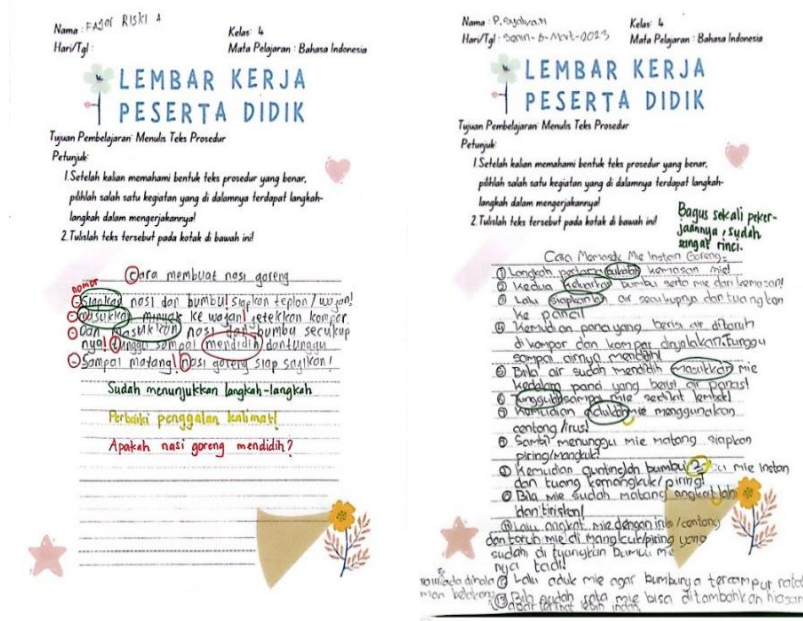 Nama : FAJar RISKI A
Kelas : 4
Hari/Tgl :
Mata Pelajaran : Bahasa Indonesia
LEMBAR KERJA
PESERTA DIDIK
Tujuan Pembelajaran: Menulis Teks Prosedur
Petunjuk:
1.Setelah kalian memahami bentuk teks prosedur yang benar,
pilihlah salah satu kegiatan yang di dalamnya terdapat langkah-
langkah dalam mengerjakannya!
2.Tulislah teks tersebut pada kotak di bawah ini!
Cara membuat nasi goreng
nomor
- Siapkan nasi dan bumbu! siapkan teplon/wajan!
- masukkan minyak ke wajan! cetekkan kompor
- Dan masukkan nasi dan bumbu secukup
nya! tunggu sampai mendidih dan tunggu
- Sampai matang! nasi goreng siap sajikan!
Sudah menunjukkan langkah-langkah
Perbaiki penggalan kalimat!
Apakah nasi goreng mendidih?
Nama : P. Syahvan
Kelas : 4
Hari/Tgl : Senin-6-Mart-2023
Mata Pelajaran : Bahasa Indonesia
LEMBAR KERJA
PESERTA DIDIK
Tujuan Pembelajaran: Menulis Teks Prosedur
Petunjuk:
1.Setelah kalian memahami bentuk teks prosedur yang benar,
pilihlah salah satu kegiatan yang di dalamnya terdapat langkah-
langkah dalam mengerjakannya!
2.Tulislah teks tersebut pada kotak di bawah ini!
Bagus sekali peker-
jaannya, sudah
sangat rinci.
Cara Memasak Mie Instan Goreng:
1 Langkah pertama bukalah kemasan mie!
2 Kedua keluarkan bumbu serta mie dari kemasan!
3 Lalu siapkanlah air secukupnya dan tuangkan
ke panci!
4 Kemudian panci yang berisi air ditaruh
di kompor dan kompor dinyalakan. tunggu
sampai airnya mendidih!
5 Bila air sudah mendidih masukkan mie
kedalam panci yang berisi air panas!
6 tunggulah sampai mie sedikit lembek!
7 Kemudian aduklah mie menggunakan
centong/irus!
8 Sambil menunggu mie matang siapkan
piring/mangkuk!
9 Kemudian guntinglah bumbu2 mie instan
dan tuang kemangkuk/piring!
10 Bila mie sudah matang angkatlah
dan tiriskan!
11 Lalu angkat mie dengan irus/centong
dan taruh mie di mangkuk/piring yang
sudah di tuangkan bumbu mi
nya tadi!
12 Lalu aduk mie agar bumbunya tercampur rata
13 Bila sudah rata mie bisa ditambahkan hiasan
agar terlihat lebih indah